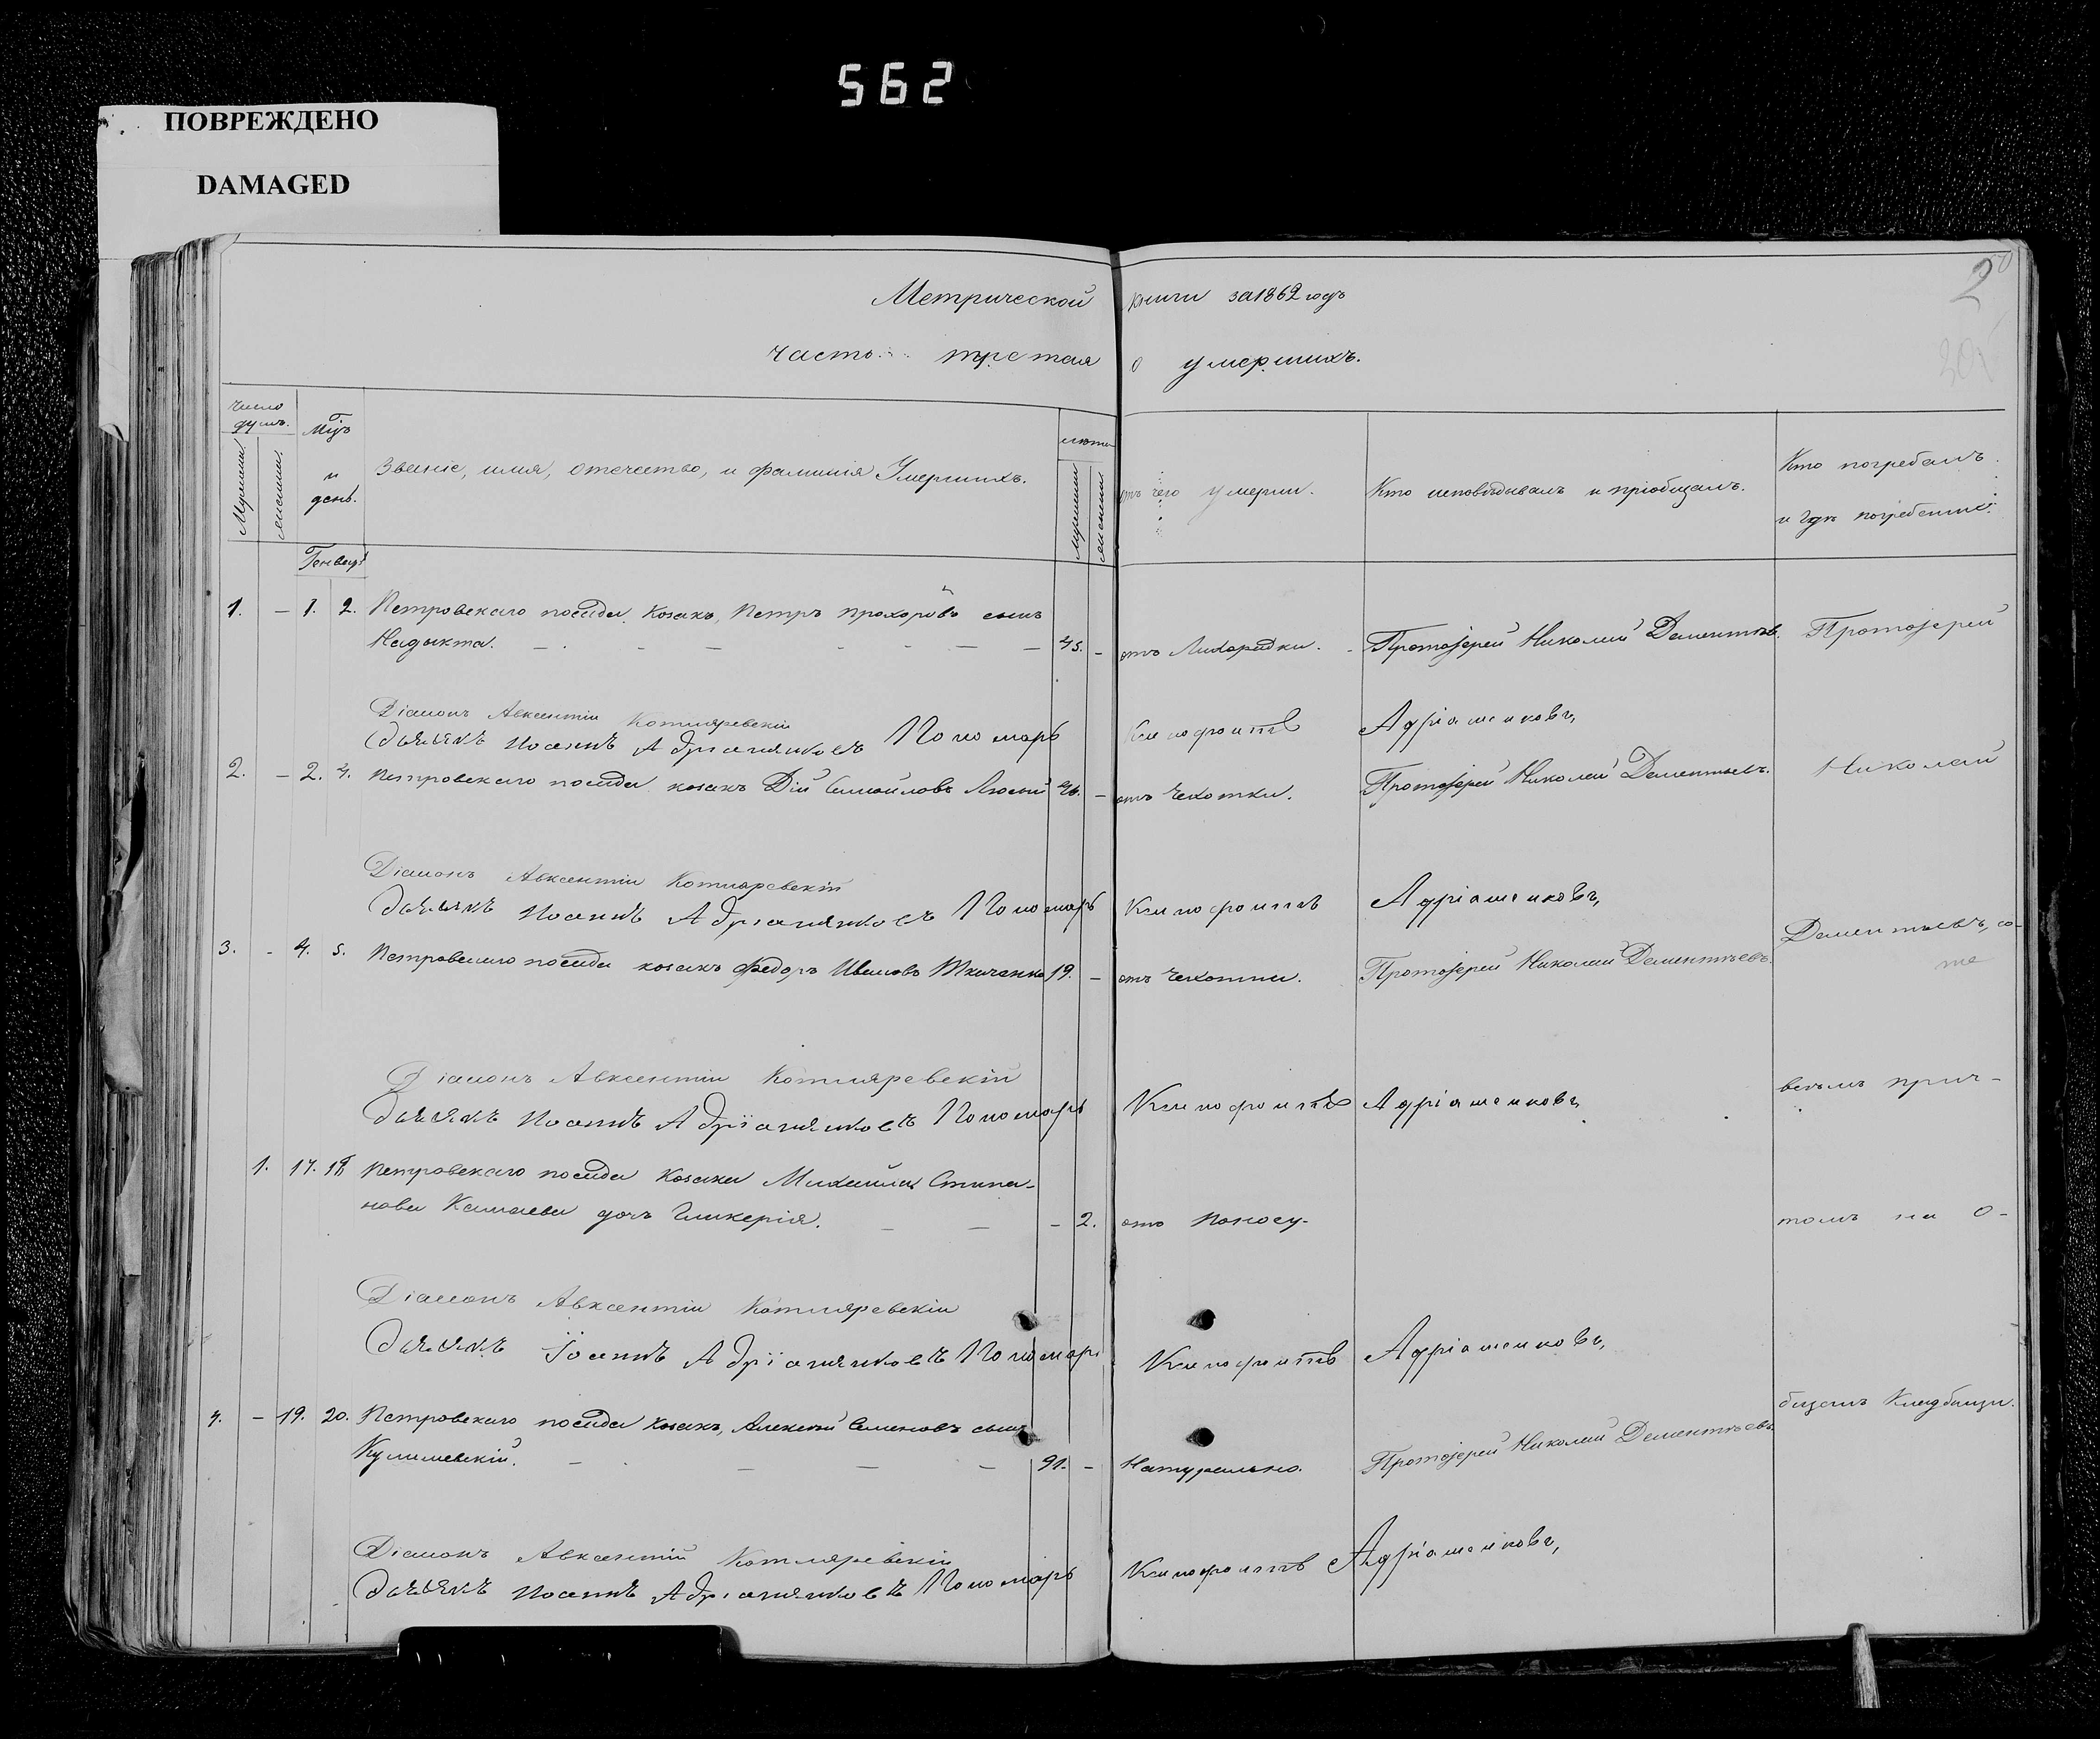 562
ПОВРЕЖДЕНО
DAMAGED
2
Метрической книги за 1862 годъ
часть третая о умершихъ.
Число душъ.
Мужески.
женски.
Мцъ и день.
Званіе, имя, отечество, и фамилія Умершихъ.
лѣта
Мужески
женски
отъ чего умерли.
Кто исповѣдывалъ и пріобщалъ.
Кто погребалъ
и гдѣ погребенны.
Генварь
1. – 1. 2. Петровскаго посада, козакъ, Петръ Прохоровъ сынъ
Надыкта. – – – 45. – отъ Лихорадки. Протоіерей Николай Дементьевъ. Протоіерей
Діаконъ Авксентій Котляревскій
Дьячекъ Иоаннъ Адріашенковъ Пономарь Ксенофонтъ Адріашенковъ,
2. – 2. 4. Петровскаго посада козакъ Дій Самойловъ – отъ Чехотки. Протоіерей Николай Дементьевъ. Николай
Діаконъ Авксентій Котляревскій
Дьячекъ Иоаннъ Адріашенковъ Пономарь Ксенофонтъ Адріашенковъ,
3. – 4. 5. Петровскаго посада козакъ Федоръ Ивановъ Ткаченко 19. – отъ Чехотки. Протоіерей Николай Дементьевъ. Дементьевъ, со-
Діаконъ Авксентій Котляревскій
Дьячекъ Иоаннъ Адріашенковъ Пономарь Ксенофонтъ Адріашенковъ, всѣмъ прич-
1. 17. 18 Петровскаго посада Козака Михаила Степа-
нова Камаева дочь Гликерія. – – – 2. отъ Поносу. томъ на о-
Діаконъ Авксентій Котляревскій
Дьячекъ Іоаннъ Адріашенковъ Пономарь Ксенофонтъ Адріашенковъ,
4. – 19. 20. Петровскаго посада козакъ, Алексѣй Семеновъ сынъ бщемъ Кладбищи.
Кулишевскій. – – – – 91. – Натурально. Протоіерей Николай Дементьевъ.
Діаконъ Авксентій Котляревскій
Дьячекъ Иоаннъ Адріашенковъ Пономарь Ксенофонтъ Адріашенковъ,